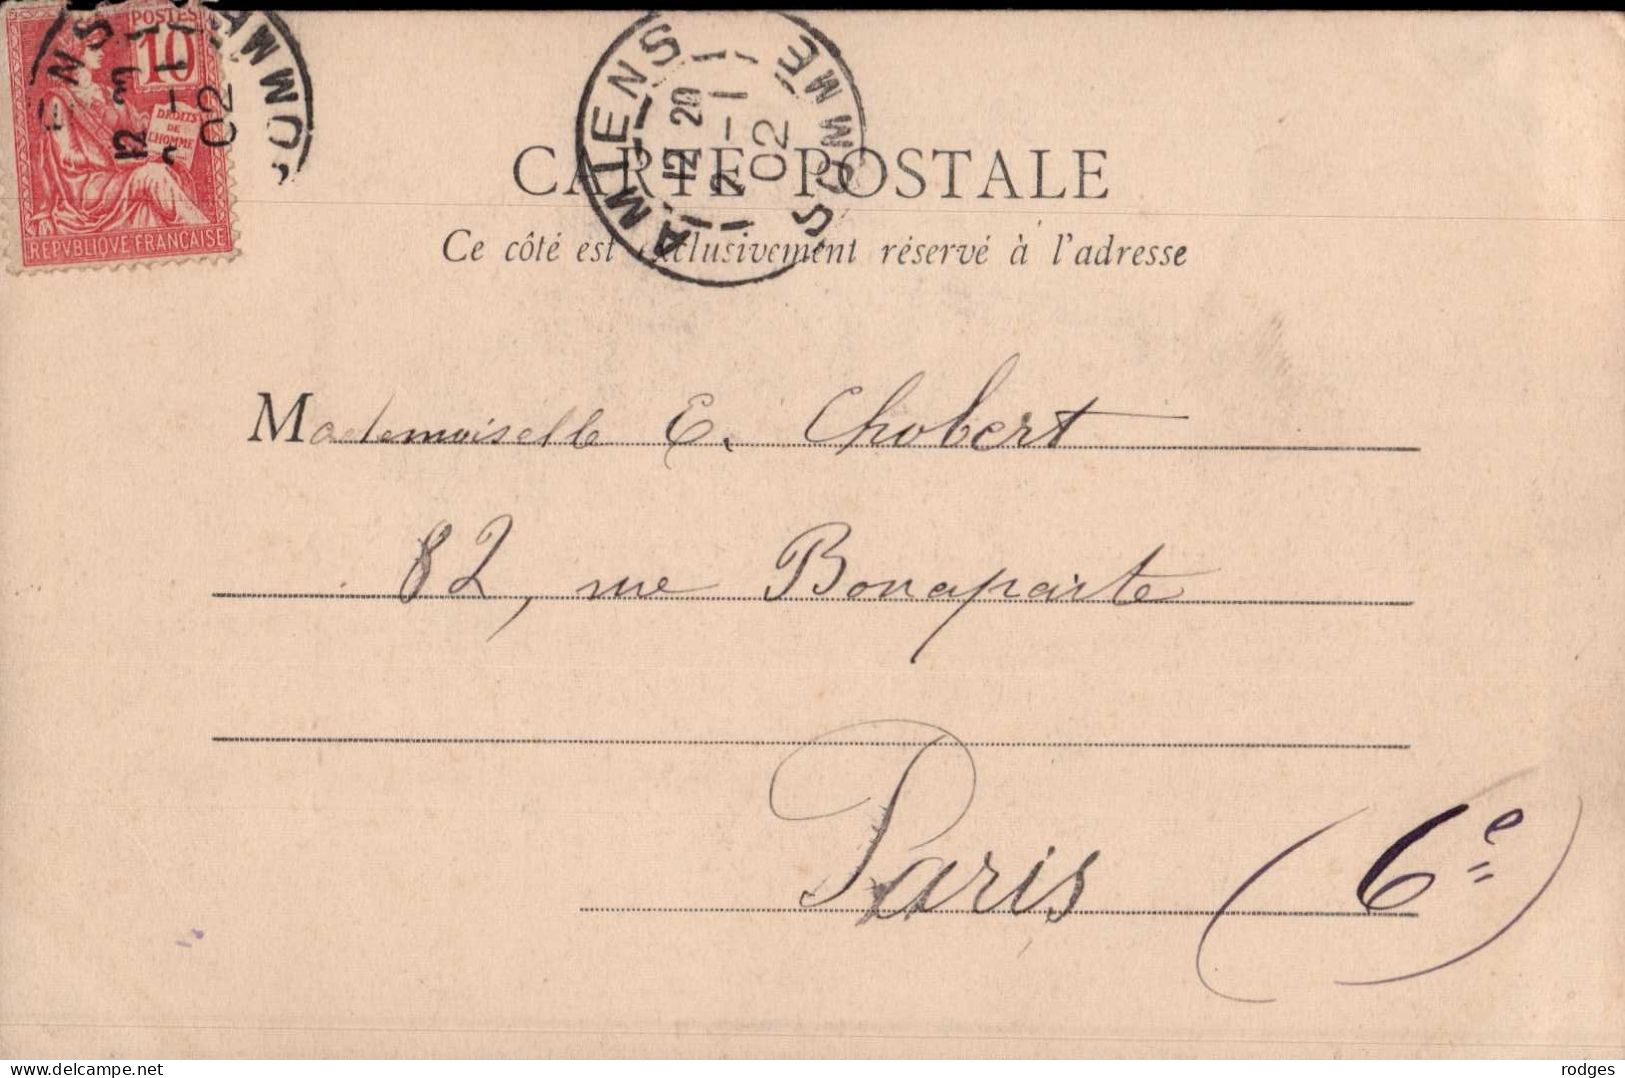 POSTES
10
DROITS
DE
L'HOMME
REPVBLIQVE FRANÇAISE
AMIENS SOMME
12 20
2 -1
02
CARTE POSTALE
Ce côté est exclusivement réservé à l'adresse
Mademoiselle E. Chobert
82, rue Bonaparte
Paris (6e)
delcampe.net
rodges